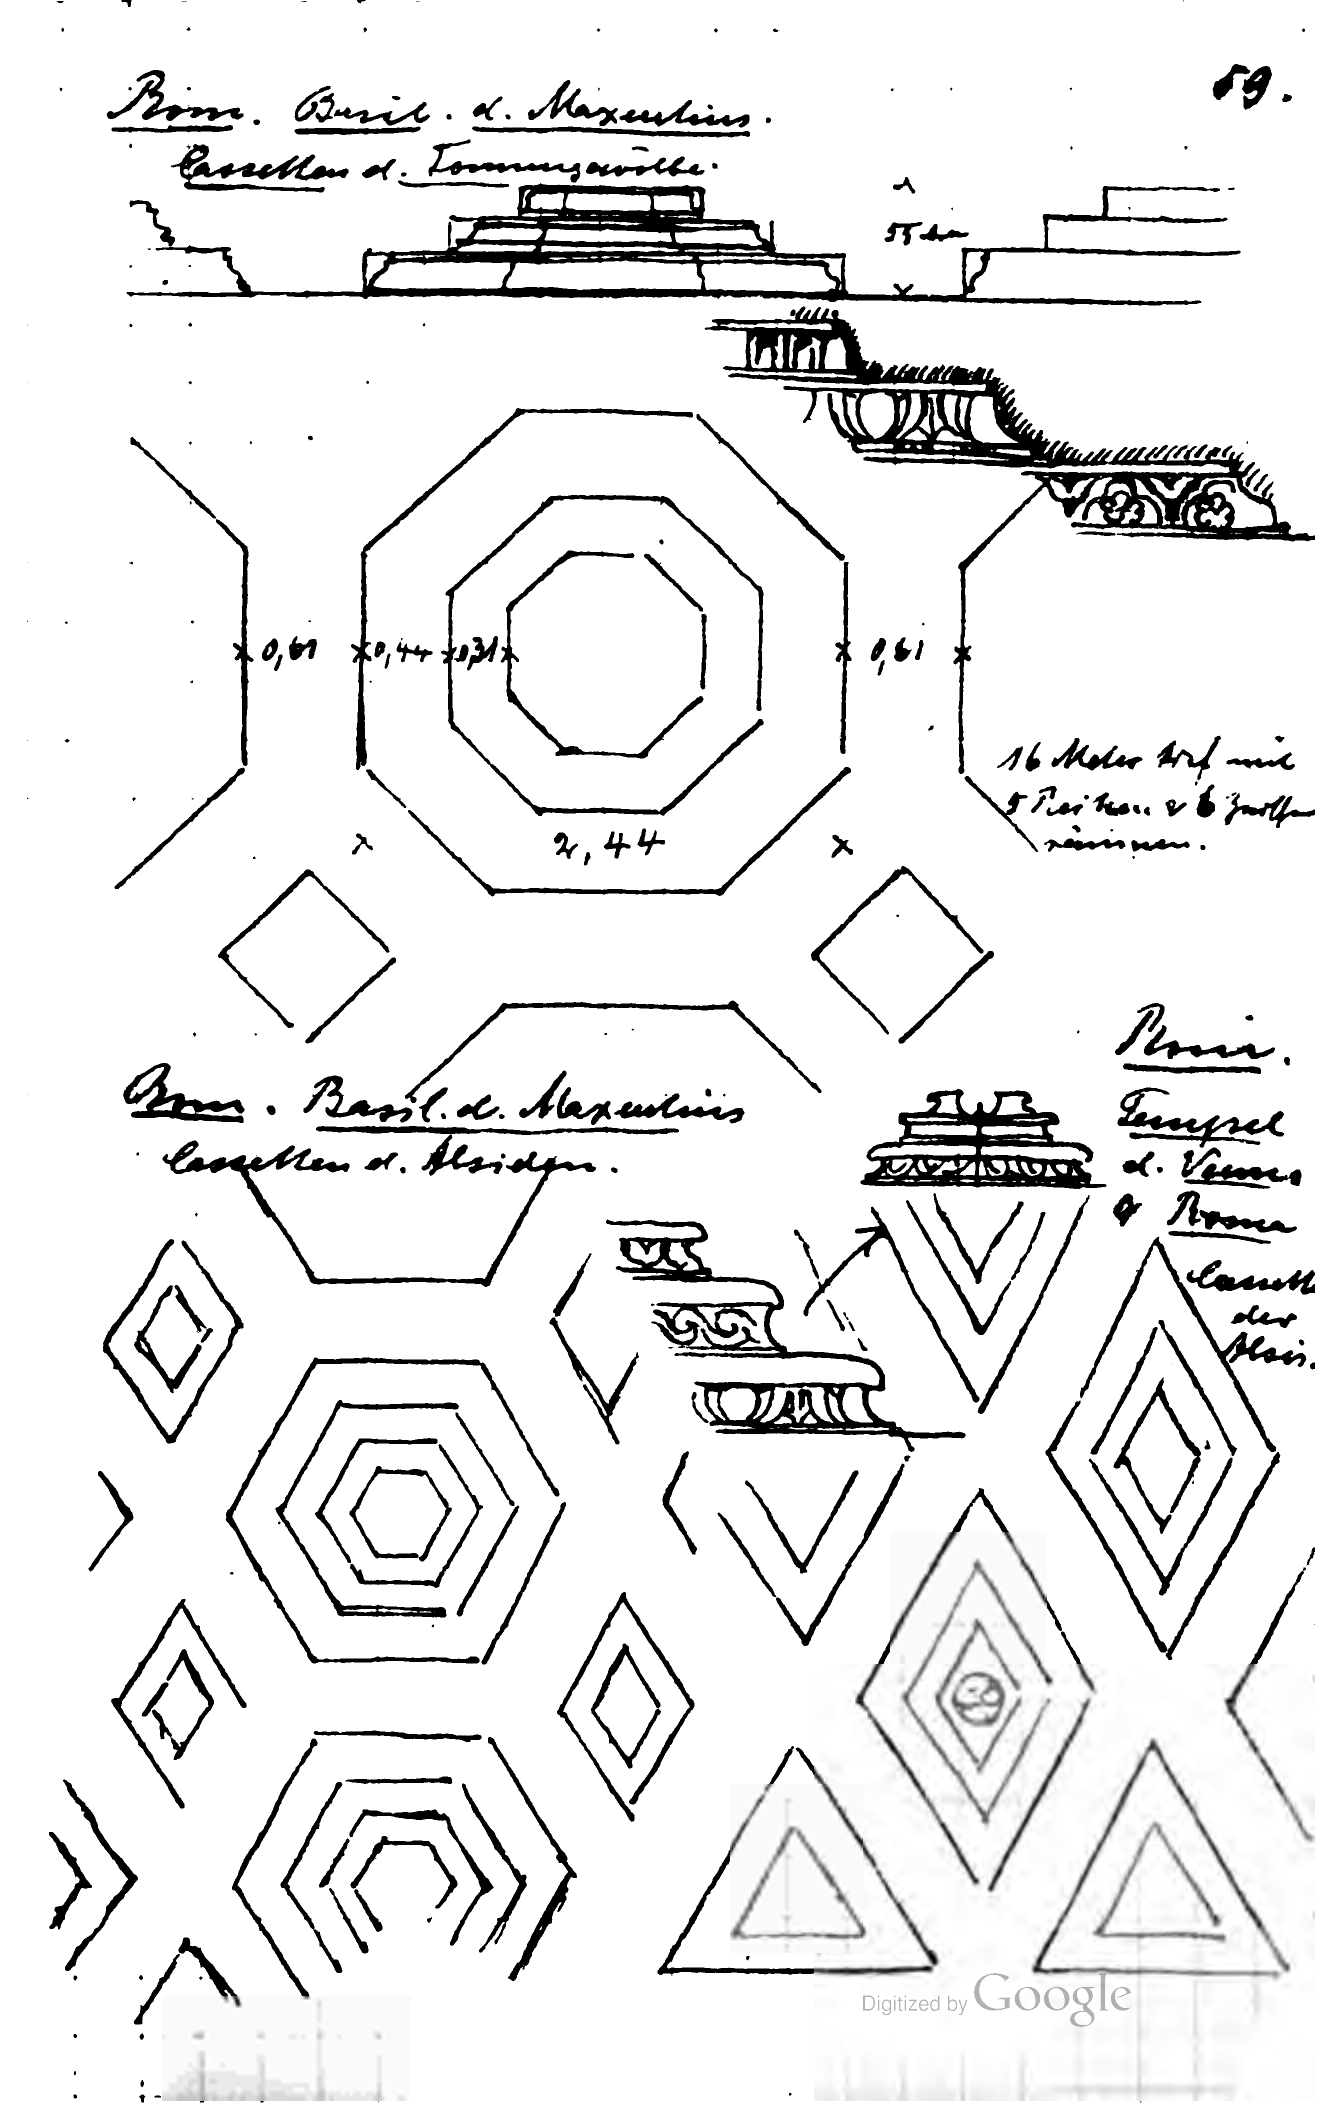 59.
Rom. Basil. d. Maxentius.
Cassetten d. Tonnengewölbe.
55 cm
0,61 0,44 0,31 0,61
16 Meter tief mit
5 Reihen & 6 Zwischen
räumen.
2,44
Rom. Basil. d. Maxentius
Cassetten d. Absiden.
Rom.
Tempel
d. Venus
& Roma
Cassett
der
Absis.
Digitized by Google